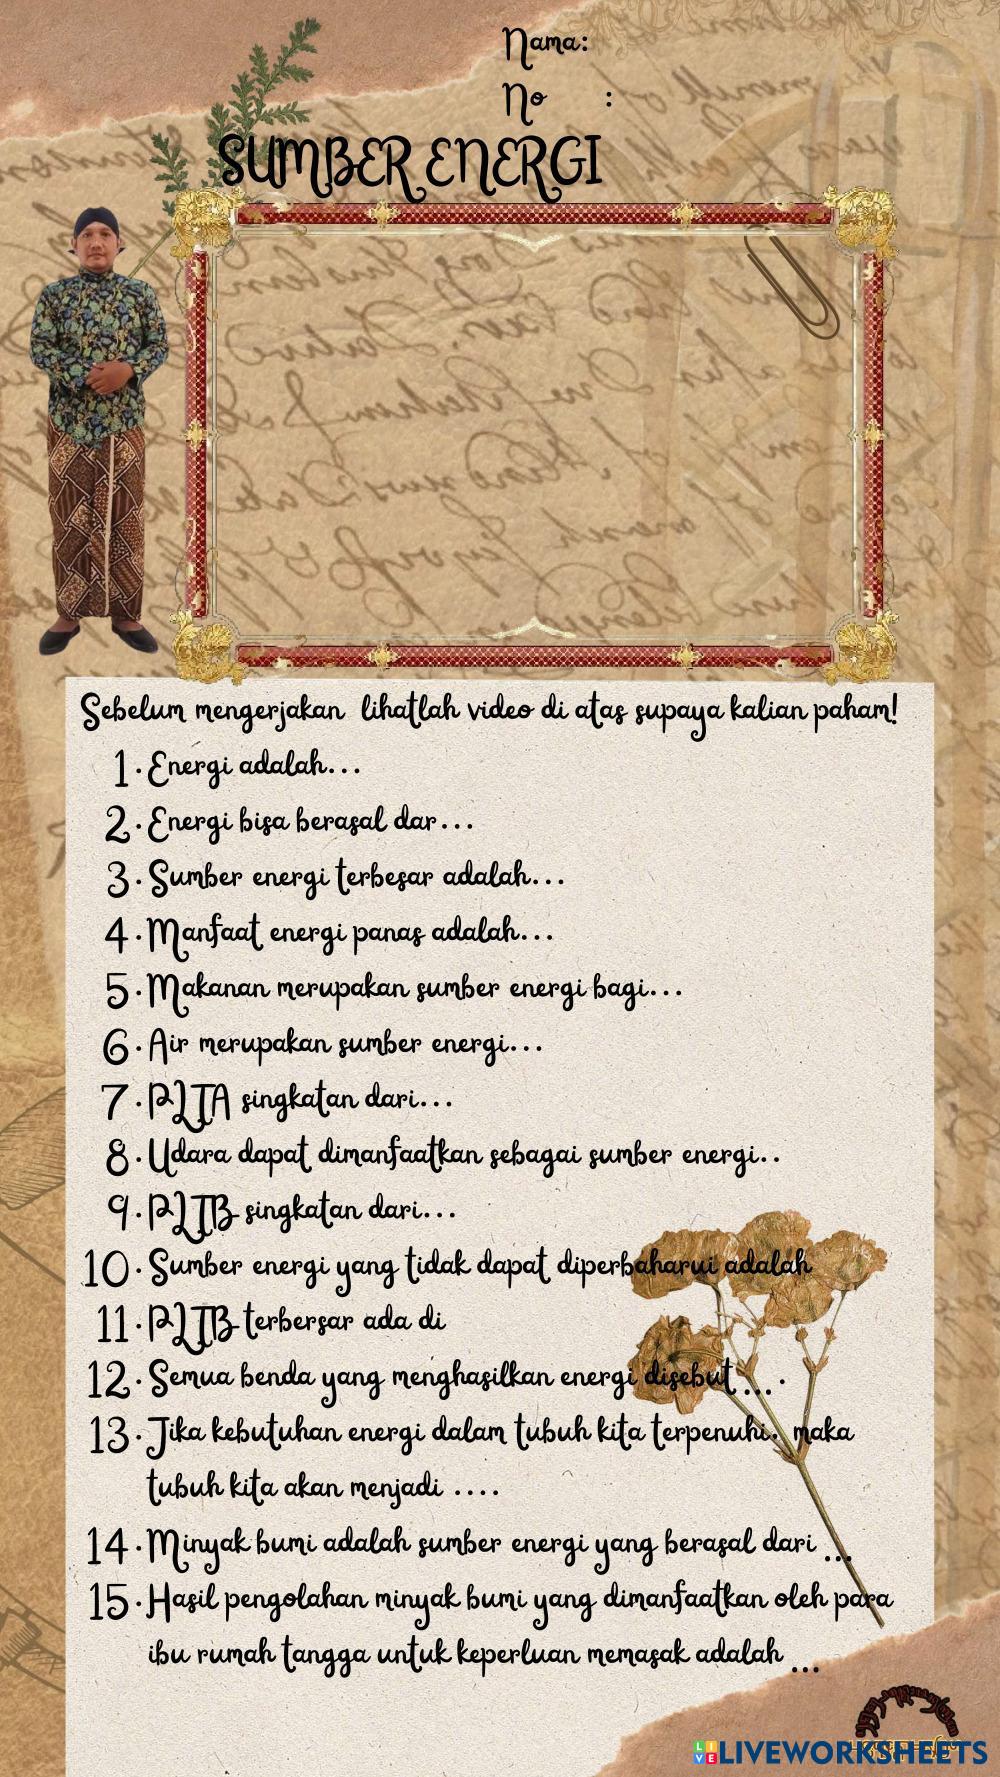 Nama:
No :
SUMBER ENERGI
Sebelum mengerjakan lihatlah video di atas supaya kalian paham!
1. Energi adalah...
2. Energi bisa berasal dar...
3. Sumber energi terbesar adalah...
4. Manfaat energi panas adalah...
5. Makanan merupakan sumber energi bagi...
6. Air merupakan sumber energi...
7. PLTA singkatan dari...
8. Udara dapat dimanfaatkan sebagai sumber energi..
9. PLTB singkatan dari...
10. Sumber energi yang tidak dapat diperbaharui adalah
11. PLTB terbersar ada di
12. Semua benda yang menghasilkan energi disebut ... .
13. Jika kebutuhan energi dalam tubuh kita terpenuhi. maka
tubuh kita akan menjadi ....
14. Minyak bumi adalah sumber energi yang berasal dari ...
15. Hasil pengolahan minyak bumi yang dimanfaatkan oleh para
ibu rumah tangga untuk keperluan memasak adalah ...
LIVEWORKSHEETS